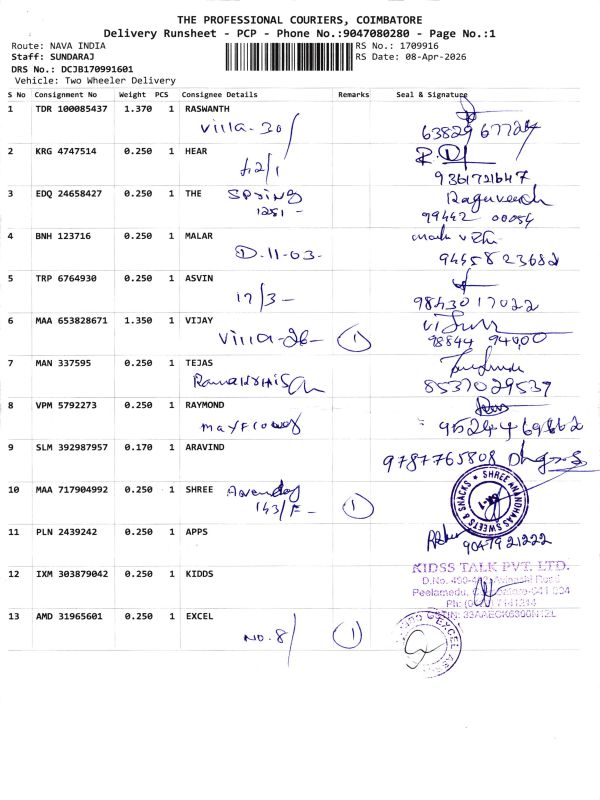 THE PROFESSIONAL COURIERS, COIMBATORE
Delivery Runsheet - PCP - Phone No.:9047080280 - Page No.:1
Route: NAVA INDIA
RS No.: 1709916
Staff: SUNDARAJ
RS Date: 08-Apr-2026
DRS No.: DCJB170991601
Vehicle: Two Wheeler Delivery
S No Consignment No Weight PCS Consignee Details Remarks Seal & Signature
1 TDR 100085437 1.370 1 RASWANTH
Villa-30
63829 67724
2 KRG 4747514 0.250 1 HEAR
42/1
9361721647
3 EDQ 24658427 0.250 1 THE Spring
1251 -
99442 00054
4 BNH 123716 0.250 1 MALAR
D.11-03-
9445823682
5 TRP 6764930 0.250 1 ASVIN
17/3-
9843017022
6 MAA 653828671 1.350 1 VIJAY
Villa-26- 1
98844 94000
7 MAN 337595 0.250 1 TEJAS
8537029539
8 VPM 5792273 0.250 1 RAYMOND
mayflower
9 SLM 392987957 0.170 1 ARAVIND
9787765808
10 MAA 717904992 0.250 1 SHREE
143/F- 1
SHREE ANANDHAAS SWEETS & SNACKS
11 PLN 2439242 0.250 1 APPS
9047921222
12 IXM 303879042 0.250 1 KIDDS
KIDSS TALK PVT. LTD.
Peelamedu,
13 AMD 31965601 0.250 1 EXCEL
NO.8/ 1
EXCEL